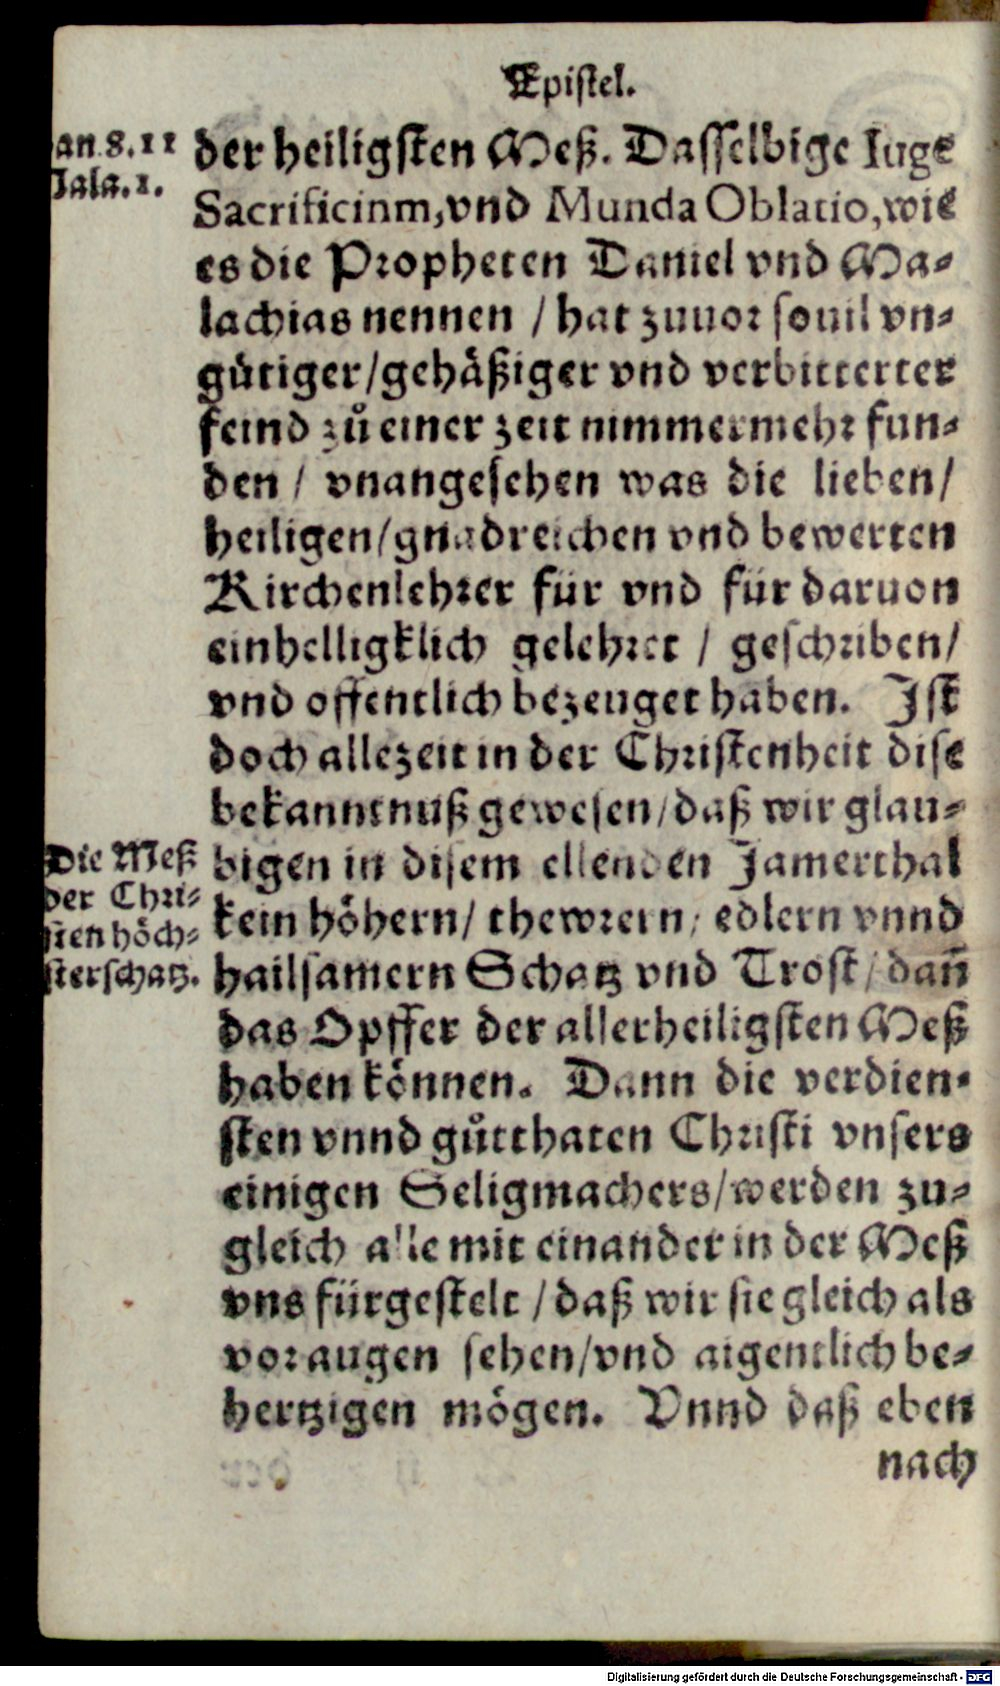 Epistel.
an 8. 11
Mala. 1.
der heiligsten Meß. Dasselbige Iuge
Sacrificium, vnd Munda Oblatio, wie
es die Propheten Daniel vnd Ma-
lachias nennen / hat zuuor souil vn-
gütiger / gehäßiger vnd verbitterter
feind zů einer zeit nimmermehr fun-
den / vnangesehen was die lieben /
heiligen / gnadreichen vnd bewerten
Kirchenlehrer für vnd für daruon
einhelligklich gelehret / geschriben /
vnd offentlich bezeuget haben. Ist
doch allezeit in der Christenheit dise
bekanntnuß gewesen / daß wir glau-
bigen in disem ellenden Jamerthal
kein höhern / thewrern / edlern vnnd
hailsamern Schatz vnd Trost / dañ
das Opffer der allerheiligsten Meß
haben können. Dann die verdien-
sten vnnd gůtthaten Christi vnsers
einigen Seligmachers / werden zu-
gleich alle mit einander in der Meß
vns fürgestelt / daß wir sie gleich als
vor augen sehen / vnd aigentlich be-
hertzigen mögen. Vnnd daß eben
nach
Die Meß
der Chri-
sten höch-
ster schatz.
Digitalisierung gefördert durch die Deutsche Forschungsgemeinschaft - DFG